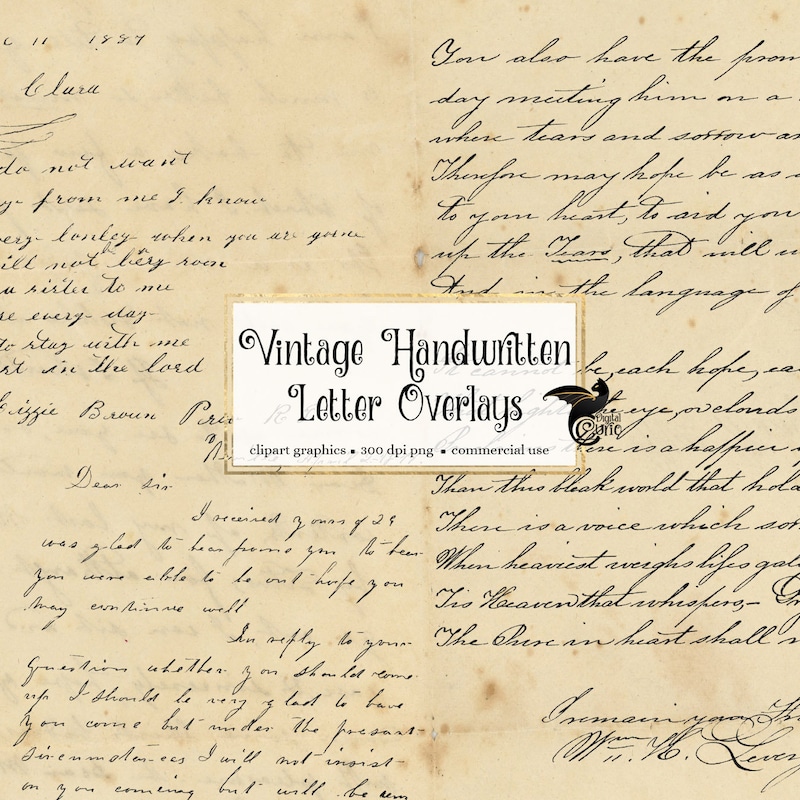 C 11 1887
Clara
do not want
from me I know
very lonley when you are gone
ill not bery roon
a sister to me
re every-day
to stay with me
rt in the lord
izzie Broun
Dear Sir
I received yours of 29
was glad to hear from you to hear
you were able to be out hope you
may continue well
In reply to your
question whether you should come
up I should be very glad to have
you come but under the present
circumstances I will not insist
on you coming but will be
You also have the prom
day meeting him on a
where tears and sorrow a
Therefore may hope be as a
to your heart, to aid you
up the Tears, that will
And in the language of
be, each hope,
eye, no clouds
there is a happier
Than this bleak world that hold
There is a voice which sor
When heaviest weighs lifes gal
Tis Heaven that whispers-
The Pure in heart shall
I remain your
Wm. H.
Vintage Handwritten
Letter Overlays
clipart graphics ▪ 300 dpi png ▪ commercial use
Digital
Curio